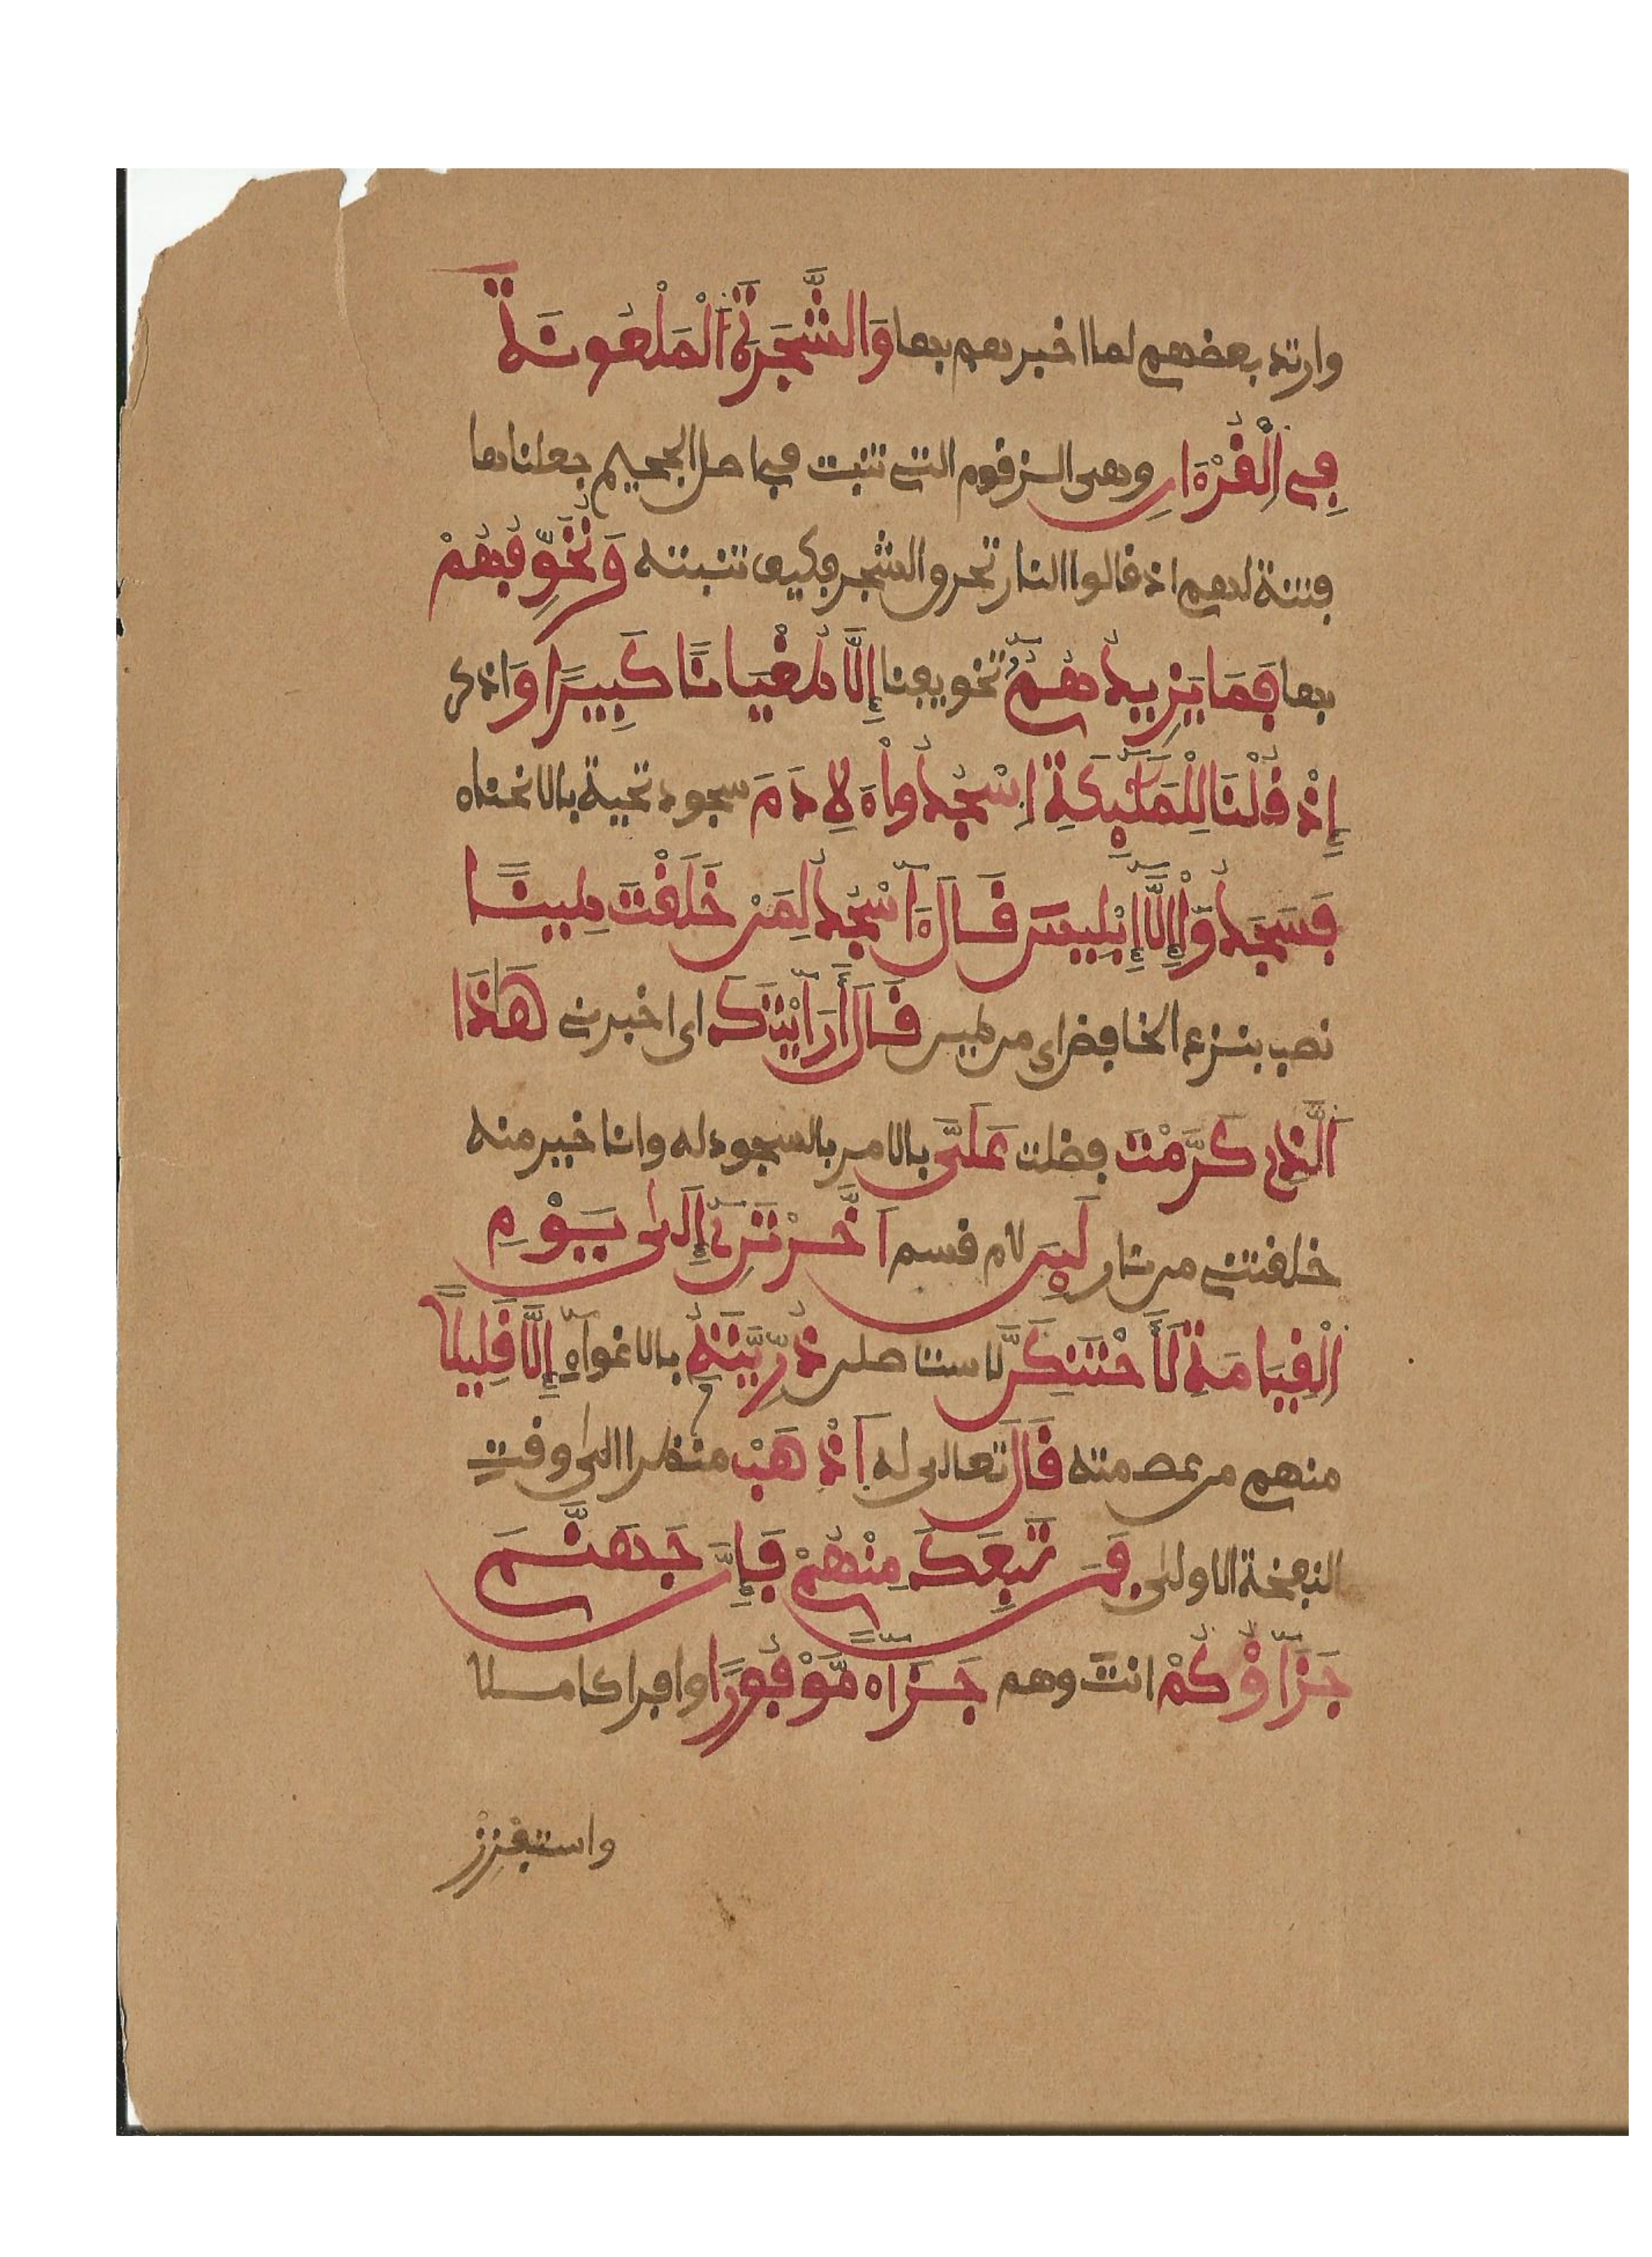 وارتد بعضهم لما اخبرهم بها وَالشَّجَرَةَ اَلْمَلْعُونَةَ
فِي اِلْقُرْءَانِ وهى الزقوم التي تنبت في اصل الجحيم جعلناها
فتنة لهم اذ قالوا النار تحرق الشجر فكيف تنبته وَنُخَوِّفُهُمْ
بها فَمَا يَزِيدُهُمُ تخويفنا إِلَّا طُغْيَانًا كَبِيرًا وَ اذكر
إِذْ قُلْنَا لِلْمَلَٰٓئِكَةِ اِسْجُدُواْ ءَلِادَمَ سجود تحية بالانحناء
فَسَجَدُوٓاْ إِلَّآ إِبْلِيسَ قَالَ ءَآسْجُدُ لِمَنْ خَلَقْتَ طِينًا
نصب بنزع الخافض اى من طين قَالَ أَرَآيْتَكَ اى اخبرني هَٰذَا
اَلَّذِي كَرَّمْتَ فضلت عَلَىَّ بالامر بالسجود له وانا خير منه
خلقتني من نار لَئِنَ لام قسم اَخَّرْتَنِۦٓ إِلَىٰ يَوْمِ
اِلْقِيَامَةِ لَأَحْتَنِكَنَّ لاستاصلن ذُرِّيَّتَهُۥٓ بالاغواء إِلَّا قَلِيلًا
منهم من عصمته قَالَ تعالى له اَذْهَبْ منظرا الى وقت
النفخة الاولى فَمَن تَبِعَكَ مِنْهُمْ فَإِنَّ جَهَنَّمَ
جَزَآؤُكُمْ انت وهم جَزَآءً مَّوْفُورًا وافرا كاملا
واستفزز